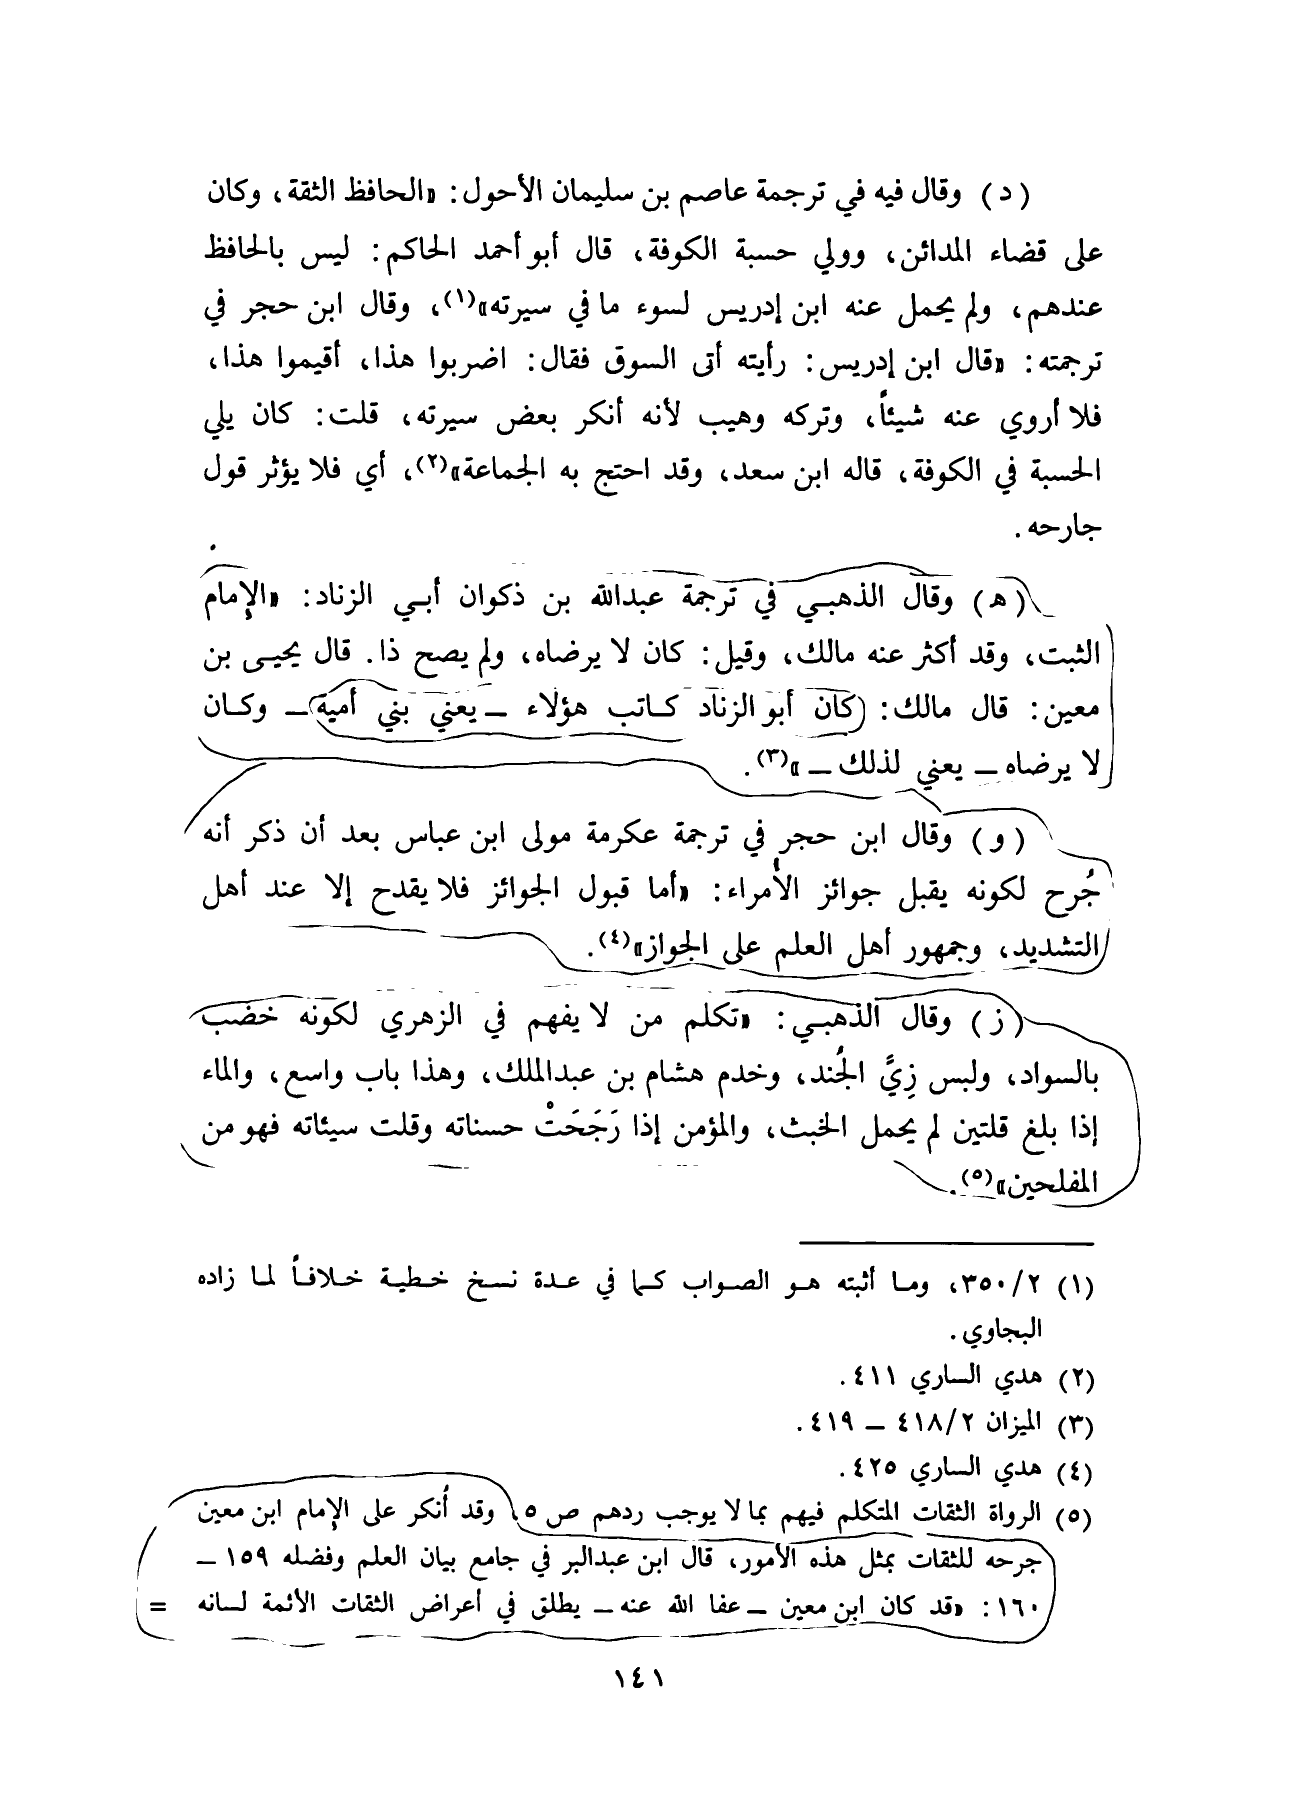 (د) وقال فيه في ترجمة عاصم بن سليمان الأحول: «الحافظ الثقة، وكان
على قضاء المدائن، وولي حسبة الكوفة، قال أبو أحمد الحاكم: ليس بالحافظ
عندهم، ولم يحمل عنه ابن إدريس لسوء ما في سيرته»(١)، وقال ابن حجر في
ترجمته: «قال ابن إدريس: رأيته أتى السوق فقال: اضربوا هذا، أقيموا هذا،
فلا أروي عنه شيئاً، وتركه وهيب لأنه أنكر بعض سيرته، قلت: كان يلي
الحسبة في الكوفة، قاله ابن سعد، وقد احتج به الجماعة»(٢)، أي فلا يؤثر قول
جارحه.
(ه) وقال الذهبي في ترجمة عبدالله بن ذكوان أبي الزناد: «الإمام
الثبت، وقد أكثر عنه مالك، وقيل: كان لا يرضاه، ولم يصح ذا. قال يحيى بن
معين: قال مالك: كان أبو الزناد كاتب هؤلاء ــ يعني بني أمية ــ وكان
لا يرضاه ــ يعني لذلك ــ»(٣).
(و) وقال ابن حجر في ترجمة عكرمة مولى ابن عباس بعد أن ذكر أنه
جُرح لكونه يقبل جوائز الأُمراء: «أما قبول الجوائز فلا يقدح إلا عند أهل
التشديد، وجمهور أهل العلم على الجواز»(٤).
(ز) وقال الذهبي: «تكلم من لا يفهم في الزهري لكونه خضب
بالسواد، ولبس زِيَّ الجُند، وخدم هشام بن عبدالملك، وهذا باب واسع، والماء
إذا بلغ قلتين لم يحمل الخبث، والمؤمن إذا رَجَحَتْ حسناته وقلت سيئاته فهو من
المفلحين»(٥).
(١) ٣٥٠/٢، وما أثبته هو الصواب كما في عدة نسخ خطية خلافاً لما زاده
البجاوي.
(٢) هدي الساري ٤١١.
(٣) الميزان ٤١٨/٢ ــ ٤١٩.
(٤) هدي الساري ٤٢٥.
(٥) الرواة الثقات المتكلم فيهم بما لا يوجب ردهم ص ٥، وقد أُنكر على الإمام ابن معين
جرحه للثقات بمثل هذه الأمور، قال ابن عبدالبر في جامع بيان العلم وفضله ١٥٩ ــ
١٦٠: «قد كان ابن معين ــ عفا الله عنه ــ يطلق في أعراض الثقات الأئمة لسانه =
١٤١